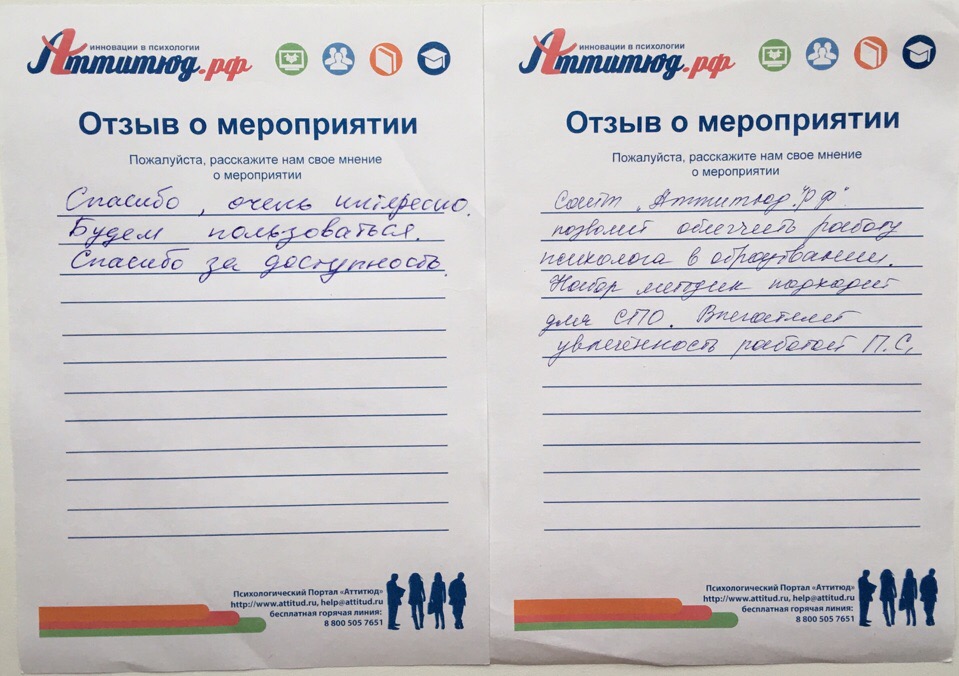 инновации в психологии
Аттитюд.рф
Отзыв о мероприятии
Пожалуйста, расскажите нам свое мнение
о мероприятии
Спасибо, очень интересно.
Будем пользоваться.
Спасибо за доступность.
Психологический Портал «Аттитюд»
http://www.attitud.ru, help@attitud.ru
бесплатная горячая линия:
8 800 505 7651
инновации в психологии
Аттитюд.рф
Отзыв о мероприятии
Пожалуйста, расскажите нам свое мнение
о мероприятии
Сайт „Аттитюд".рф"
позволит облегчить работу
психолога в образовании.
Набор методик подходит
для СПО. Впечатляет
увлечённость работой П.С.
Психологический Портал «Аттитюд»
http://www.attitud.ru, help@attitud.ru
бесплатная горячая линия:
8 800 505 7651